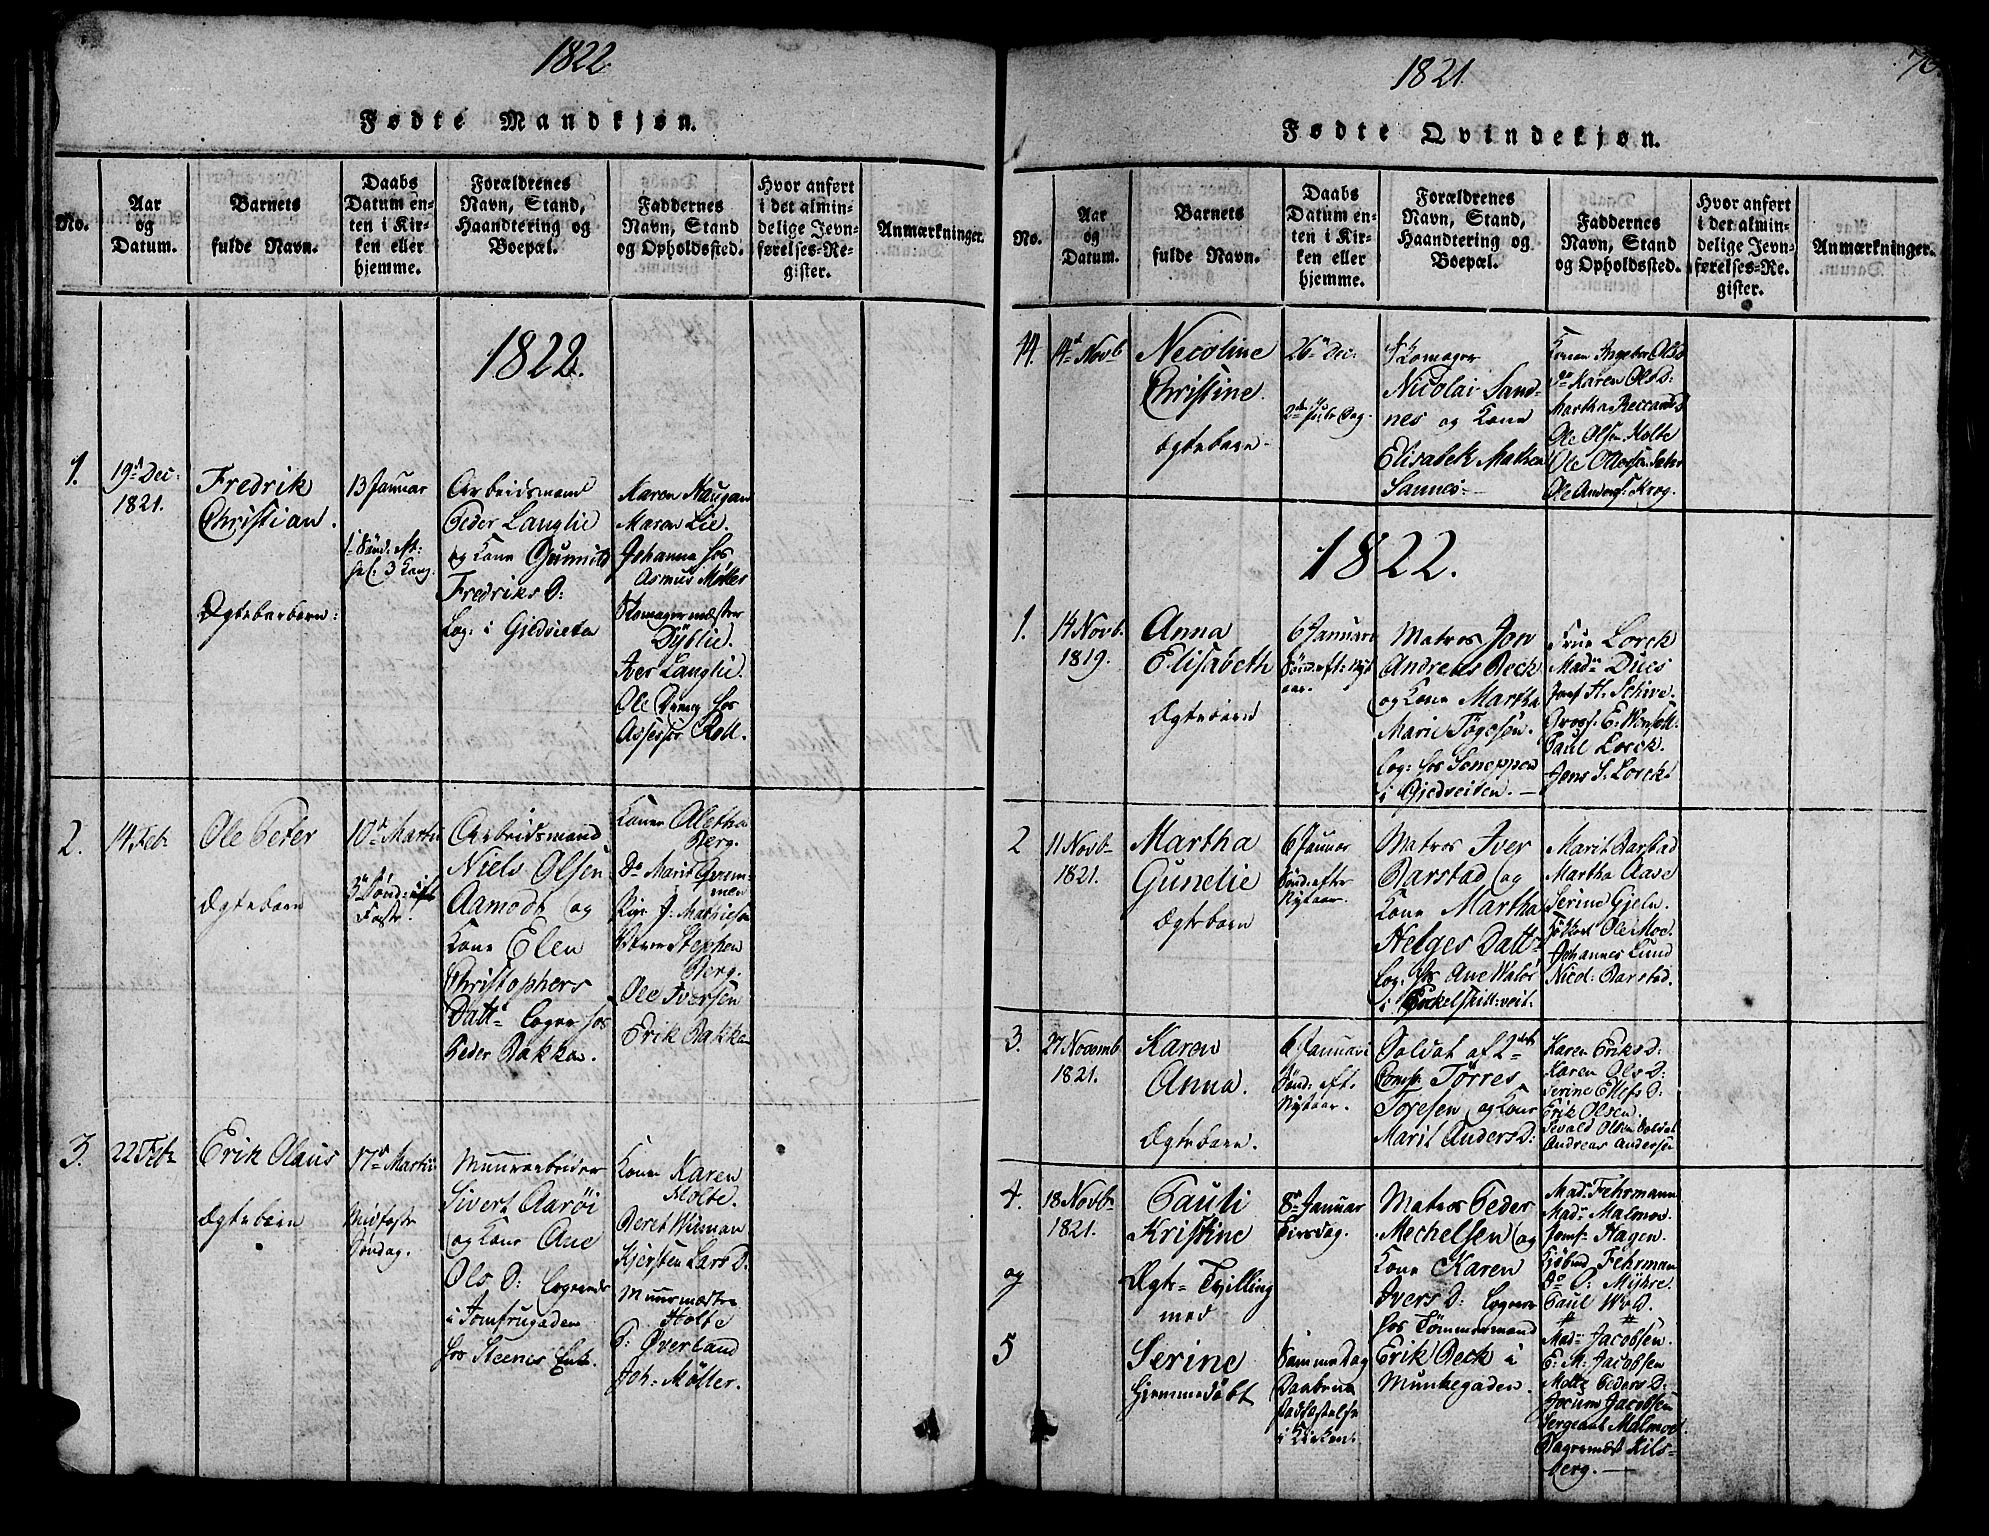 1822
Fødte Mandkjøn.
No.
Aar
og
Datum.
Barnets
fulde Navn.
Daabs
Datum en-
ten i Kir-
ken eller
hjemme.
Forældrenes
Navn, Stand,
Haandtering og
Boepæl.
Faddernes
Navn, Stand
og Opholdssted.
Hvor anført
i det almin-
delige Jevn-
førelses-Re-
gister.
Anmærkninger.
1822.
1.
19 Dec:
1821.
Fredrik
Christian.
Ægtebarn:
13 Januar
Arbeidsmand
Peder Langlie
og Kone Gunnild
Fredriks D:
Log: i Gjedveiten
Karen Haugan
Maren Lie.
Johanna hos
Asmus Møller
Skomagermester
Dyblie.
Iver Langlie.
Ole Dreng hos
Assessor Roll.
2.
14 Feb
Ole Peter
Ægtebarn
10 Martii
3 Sønd: i
Faste.
Arbeidsmand
Niels Olsen
Aamodt og
Kone Elen
Christophers
Datt: Logere hos
Peder Bakka.
Kone Aletha
Berg.
Do Marit
Stephen
Berg.
Ole Iversen
Erik Bakka
3.
22 Feb
Erik Olaus
Ægtebarn
17 Martii
Midfaste
Søndag.
Muurarbeider
Sivert Aarøi
og Kone Ane
Ols D: Logerende
i Jomfrugaden
hos Steenes Enke.
Kone Karen
Holte.
Beret Wieman
Kjersten Lars D:
Muurmester
Holte
P: Øverland
Joh: Møller.
1821
70.
Fødte Qvindekjøn.
No.
Aar
og
Datum.
Barnets
fulde Navn.
Daabs
Datum en-
ten i Kir-
ken eller
hjemme.
Forældrenes
Navn, Stand,
Haandtering og
Boepæl.
Faddernes
Navn, Stand
og Opholdssted.
Hvor anført
i der almin-
delige Jevn-
førelses-Re-
gister.
Anmærkninger.
44.
14 Novb
Necoline
Christine.
Ægtebarn
26 Dec:
2den Jule Dag.
Skomager
Nicolai Sand-
nes og Kone
Elisabeth
Sannes
Konen Ingebor Olsd
do Karen Ols D:
Martha
Ole Olsen Holte
Ole Ottersen
Ole Anders: Krog.
1822.
1.
14 Novb.
1819.
Anna
Elisabeth
Ægtebarn
6 Januari
Sønd: eft: Nyt
aar.
Matros Jon
Andreas Beck
og Kone Martha
Marie Tøgesen.
Log: hos
i Gjedveiten.
Frue Lorck
Mad: Dues
Jomf H. Schive.
Gross: E:
Paul Lorck.
Jens S. Lorck
2
11 Novb
1821.
Martha
Gunelie
Ægtebarn
6 Januar
Sønd: efter
Nytaar.
Matros Iver
Barstad og
Kone Martha
Helges Datt
Log: hos Ane
i
Marit Barstad
Martha Aase
Serine Gjeln
Ole Moe.
Johannes Lund
Nicol: Barstad.
3.
27 Novemb
1821.
Karen
Anna.
Ægtebarn.
6 Januari
Sønd: eft.
Nytaar.
Soldat af 2det
Comp: Tørres
Toresen og Kone
Marit Anders D:
Karen Eriks D:
Karen Ols D:
Serine Ellefs D:
Erik Olsen.
Sevald Olsen Soldat
Andreas Andersen
4.
18 Novb
1821.
og
5
Pauli
Kristine
Ægte Tvilling
med
Serine
Hjemmedøbt
8 Januar
Tirsdag.
Samme Dag
Daabens
Stadfæstelse
i Kirken.
Matros Peder
Mechelsen og
Kone Karen
Ivers D: Logere
hos Tømmermand
Erik Beck i
Munkegaden.
Mad: Fehrmann
Mad: Malmoe.
Jomf: Hagen.
Kjøbmd Fehrman
do O: Myhre.
Paul Wold.
Mad: Jacobsen.
E: M: Jacobsen
Malte Peders D:
Jocum Jacobsen
Sergeant Malmoe.
Kils-
berg.